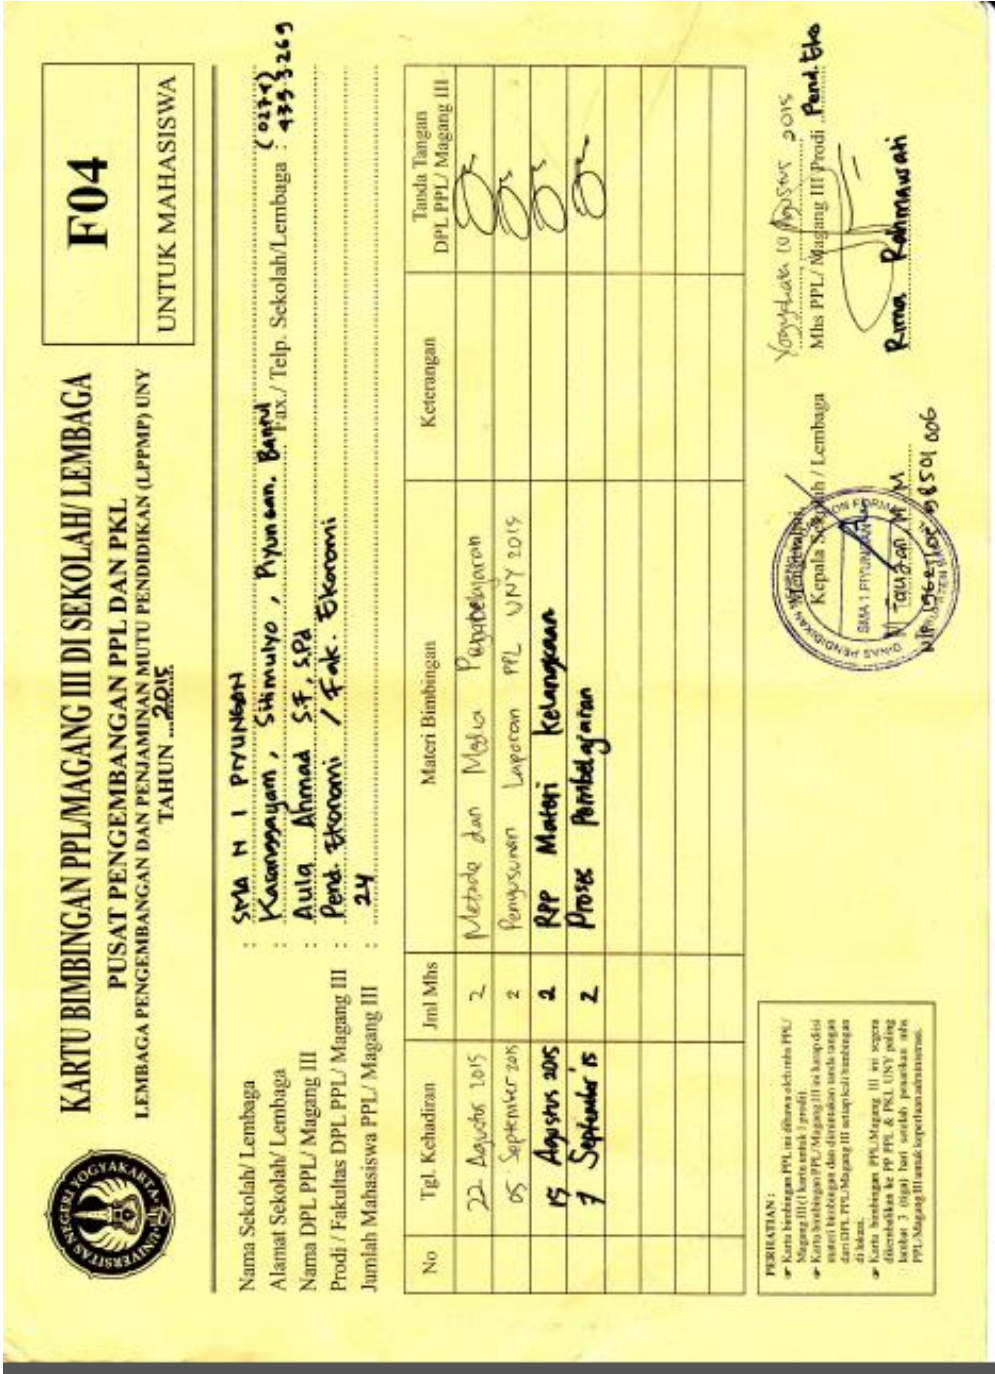 F04
UNTUK MAHASISWA
KARTU BIMBINGAN PPL/MAGANG III DI SEKOLAH/ LEMBAGA
PUSAT PENGEMBANGAN PPL DAN PKL
LEMBAGA PENGEMBANGAN DAN PENJAMINAN MUTU PENDIDIKAN (LPPMP) UNY
TAHUN 2015
UNIVERSITAS NEGERI YOGYAKARTA
Nama Sekolah/ Lembaga : SMA N 1 PIYUNGAN
Alamat Sekolah/ Lembaga : Karanggayam, Sitimulyo, Piyungan. Bantul Fax./ Telp. Sekolah/Lembaga : (0274)
Nama DPL PPL/ Magang III : Aula Ahmad S.F, S.Pd
Prodi / Fakultas DPL PPL/ Magang III : Pend. Ekonomi / Fak. Ekonomi
Jumlah Mahasiswa PPL/ Magang III : 24
No Tgl. Kehadiran Jml Mhs Materi Bimbingan Keterangan Tanda Tangan DPL PPL/ Magang III
22 Agustus 2015 2 Metode dan Media Pembelajaran
05 September 2015 2 Penyusunan Laporan PPL UNY 2015
15 Agustus 2015 2 RPP Materi Kelangkaan
7 September 15 2 Proses Pembelajaran
PERHATIAN :
☞ Kartu bimbingan PPL ini dibawa oleh mhs PPL/
Magang III (1 kartu untuk 1 prodi).
☞ Kartu bimbingan PPL/Magang III ini harap diisi
materi bimbingan dan dimintakan tanda tangan
dari DPL PPL/Magang III setiap kali bimbingan
di lokasi.
☞ Kartu bimbingan PPL/Magang III ini segera
dikembalikan ke PP PPL & PKL UNY paling
lambat 3 (tiga) hari setelah penarikan mhs
PPL/Magang III untuk keperluan administrasi.
Mengetahui
Kepala Sekolah / Lembaga
SMA 1 PIYUNGAN
DINAS PENDIDIKAN
Yogyakarta 10 Agustus 2015
Mhs PPL/ Magang III Prodi Pend. Eko
Rima Rahmawati